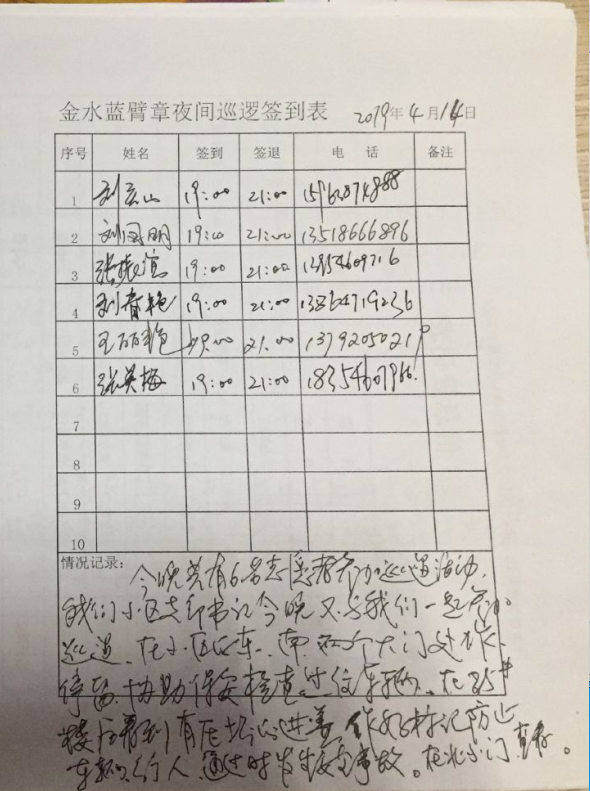 金水蓝臂章夜间巡逻签到表 2019年4月14日
序号 姓名 签到 签退 电 话 备注
1 19:00 21:00
2 刘国明 19:00 21:00 13518666896
3 张振 19:00 21:00
4 刘春艳 19:00 21:00 13864719236
5 王丽艳 19:00 21:00 13792050219
6 张英梅 19:00 21:00 18354607966
7
8
9
10
情况记录:
今晚共有6名志愿者参加巡逻活动,
我们小区支部书记今晚又与我们一起参加
巡逻,在小区东、南两个大门处
停留,协助保安检查过往车辆、在35#
楼后看到有 井 作好标记防止
车辆行人通过时发生安全事故。在北小门查看。